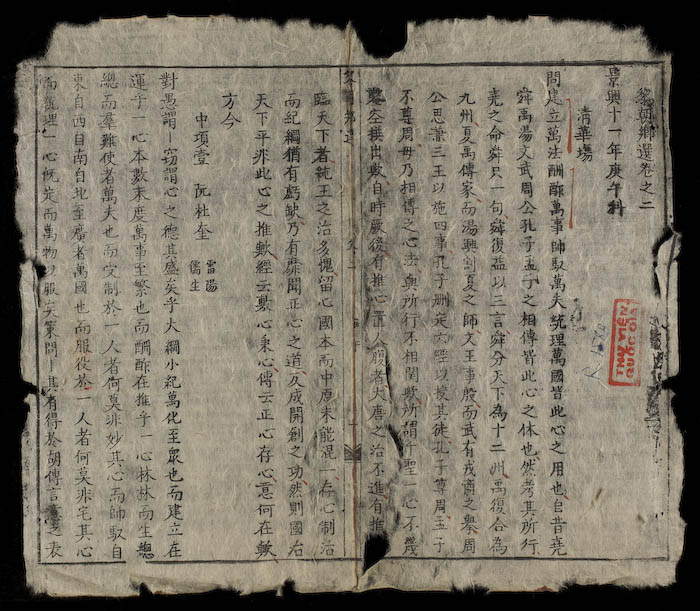 黎朝鄉選卷之二
景興十一年庚午科
清華場
問建立萬法酬酢萬事師馭萬夫統理萬國皆此心之用也自昔堯
舜禹湯文武周公孔子孟子之相傳皆此心之休也然考其所行
堯之命舜只一句舜復益以三言舜分天下為十二州禹復合為
九州夏禹傳家而湯興割夏之師文王事殷而武有戎商之舉周
公思兼三王以施四事孔子刪定六經以授其徒孔子尊周孟子
不尊周毋乃相傳之心法與所行不相関歟所謂千聖一心不幾
虛空撰出歟自時厥後有推心置人腹者夫唐之治不進有推
臨天下者純王之治多愧留心國本而中原未能混一存心制治
而紀綱猶有虧缺乃有靡聞正心之道反成開創之功然則國治
天下平非此心之推歟經云敷心秉心傳云正心存心意何在歟
方今
中項壹 阮杜奎 雷陽 儒生
對愚謂 竊謂心之德其盛矣乎大綱小紀萬化至眾也而建立在
運乎一心本數末度萬事至繁也而酬酢在推乎一心林林而生總
總而羣難使者萬夫也而受制於一人者何莫非妙其心而師馭自
東自西自南自北至廣者萬國也而服役於一人者何莫非宅其心
而統理一心既定而萬物以服矣策問一其有得於胡傳言之表
THƯ VIỆN
QUỐC GIA